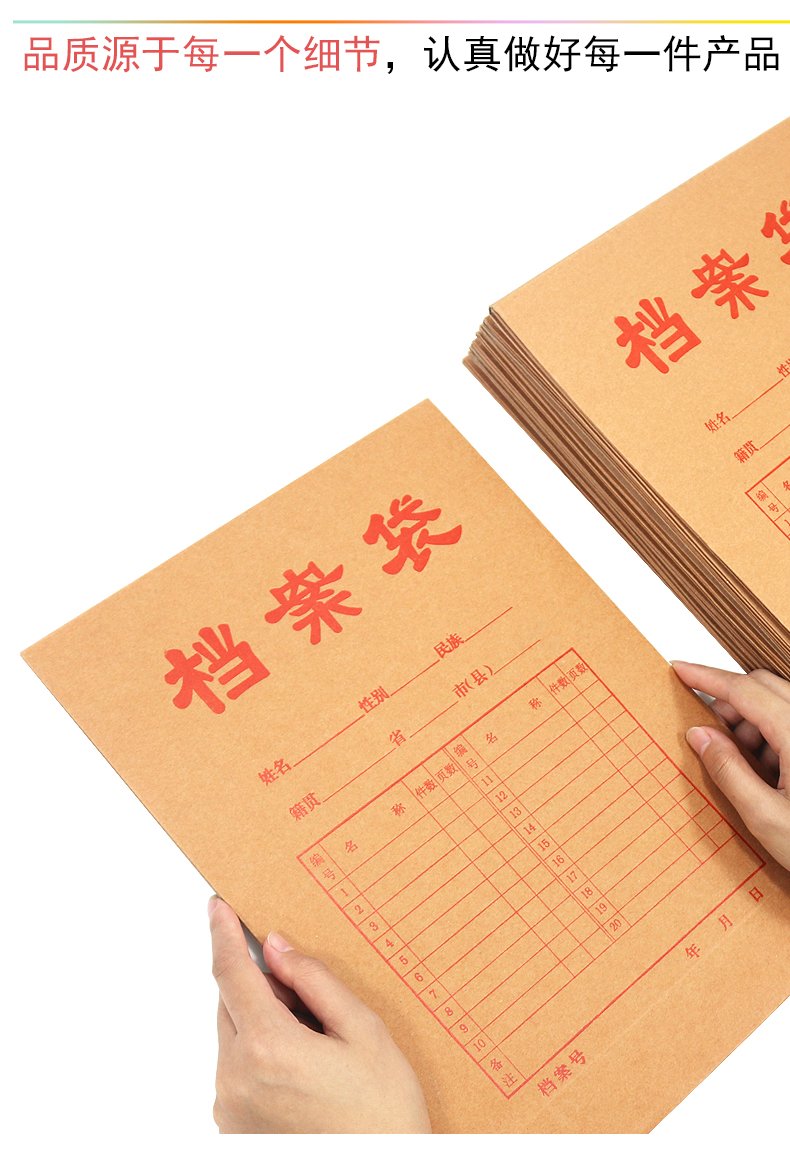 品质源于每一个细节，认真做好每一件产品
档案袋
姓名 性别 民族
籍贯 省 市(县)
编号 名称 件数 页数 编号 名称 件数 页数
1 11
2 12
3 13
4 14
5 15
6 16
7 17
8 18
9 19
10 20
备注
档案号 年 月 日
档案袋
姓名 性别
籍贯
编号 名
1